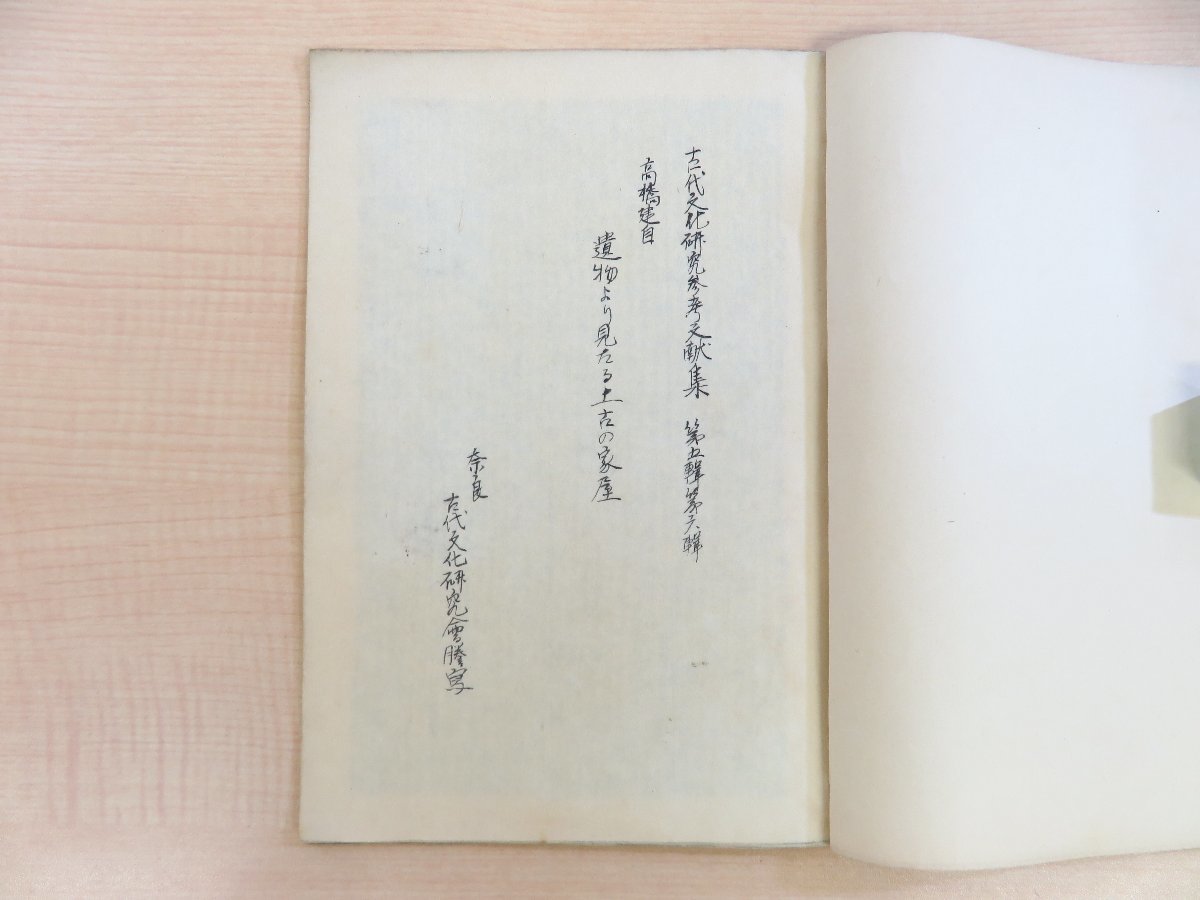 古代文化研究参考文献集 第五輯第六輯
高橋健自
遺物より見たる上古の家屋
奈良
古代文化研究會謄寫